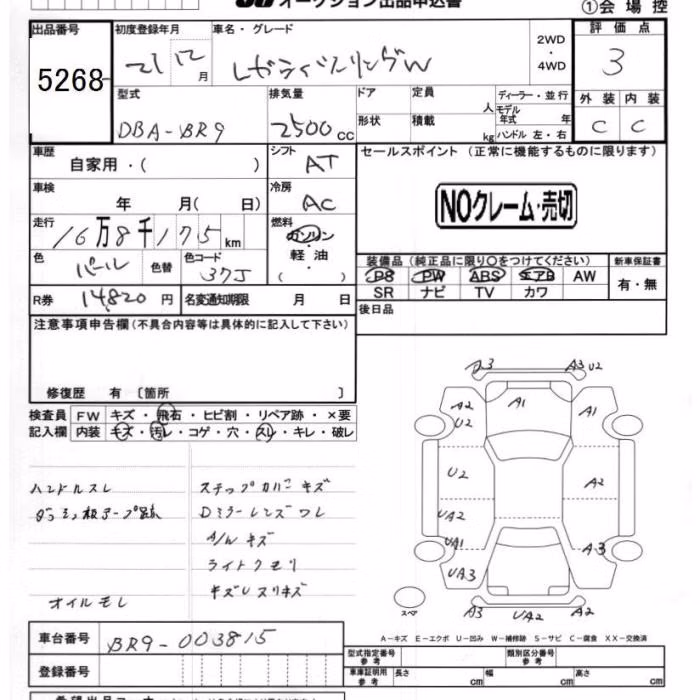 オークション出品申込書
①会場控
出品番号 初度登録年月 車名・グレード 評価点
5268 21 12月 レガシィツーリングW 2WD・4WD 3
型式 排気量 ドア 定員 人 ディーラー・並行 外装 内装
DBA-BR9 2500cc 形状 積載 kg モデル年式 年 C C
ハンドル 左・右
車歴 シフト セールスポイント (正常に機能するものに限ります)
自家用・( ) AT
車検 冷房
年 月( 日) AC
NOクレーム・売切
走行 燃料
16万8千175km ガソリン・軽油
装備品(純正品に限り○をつけてください) 新車保証書
色 パール 色替 色コード 37J
PS PW ABS エアB AW 有・無
SR ナビ TV カワ
R券 14,820円 名変通知期限 月 日
後日品
注意事項申告欄(不具合内容等は具体的に記入して下さい)
修復歴 有 〔箇所 〕
検査員 FW キズ・飛石・ヒビ割・リペア跡・×要
記入欄 内装 キズ・汚レ・コゲ・穴・スレ・キレ・破レ
A3 A3 U2
A2 U2 A1 A1
U2 A2
UA2
UA1 A3
UA3
スペ A3 UA2 A3
ハンドルスレ ステップカバーキズ
Dミラーレンズワレ
A/Wキズ
ライトクモリ
キズUスリキズ
オイルモレ
A-キズ E-エクボ U-凹み W-補修跡 S-サビ C-腐食 XX-交換済
車台番号 BR9-003815
登録番号
型式指定番号 参考 類別区分番号 参考
車庫証明用 参考 長さ cm 幅 cm 高さ cm